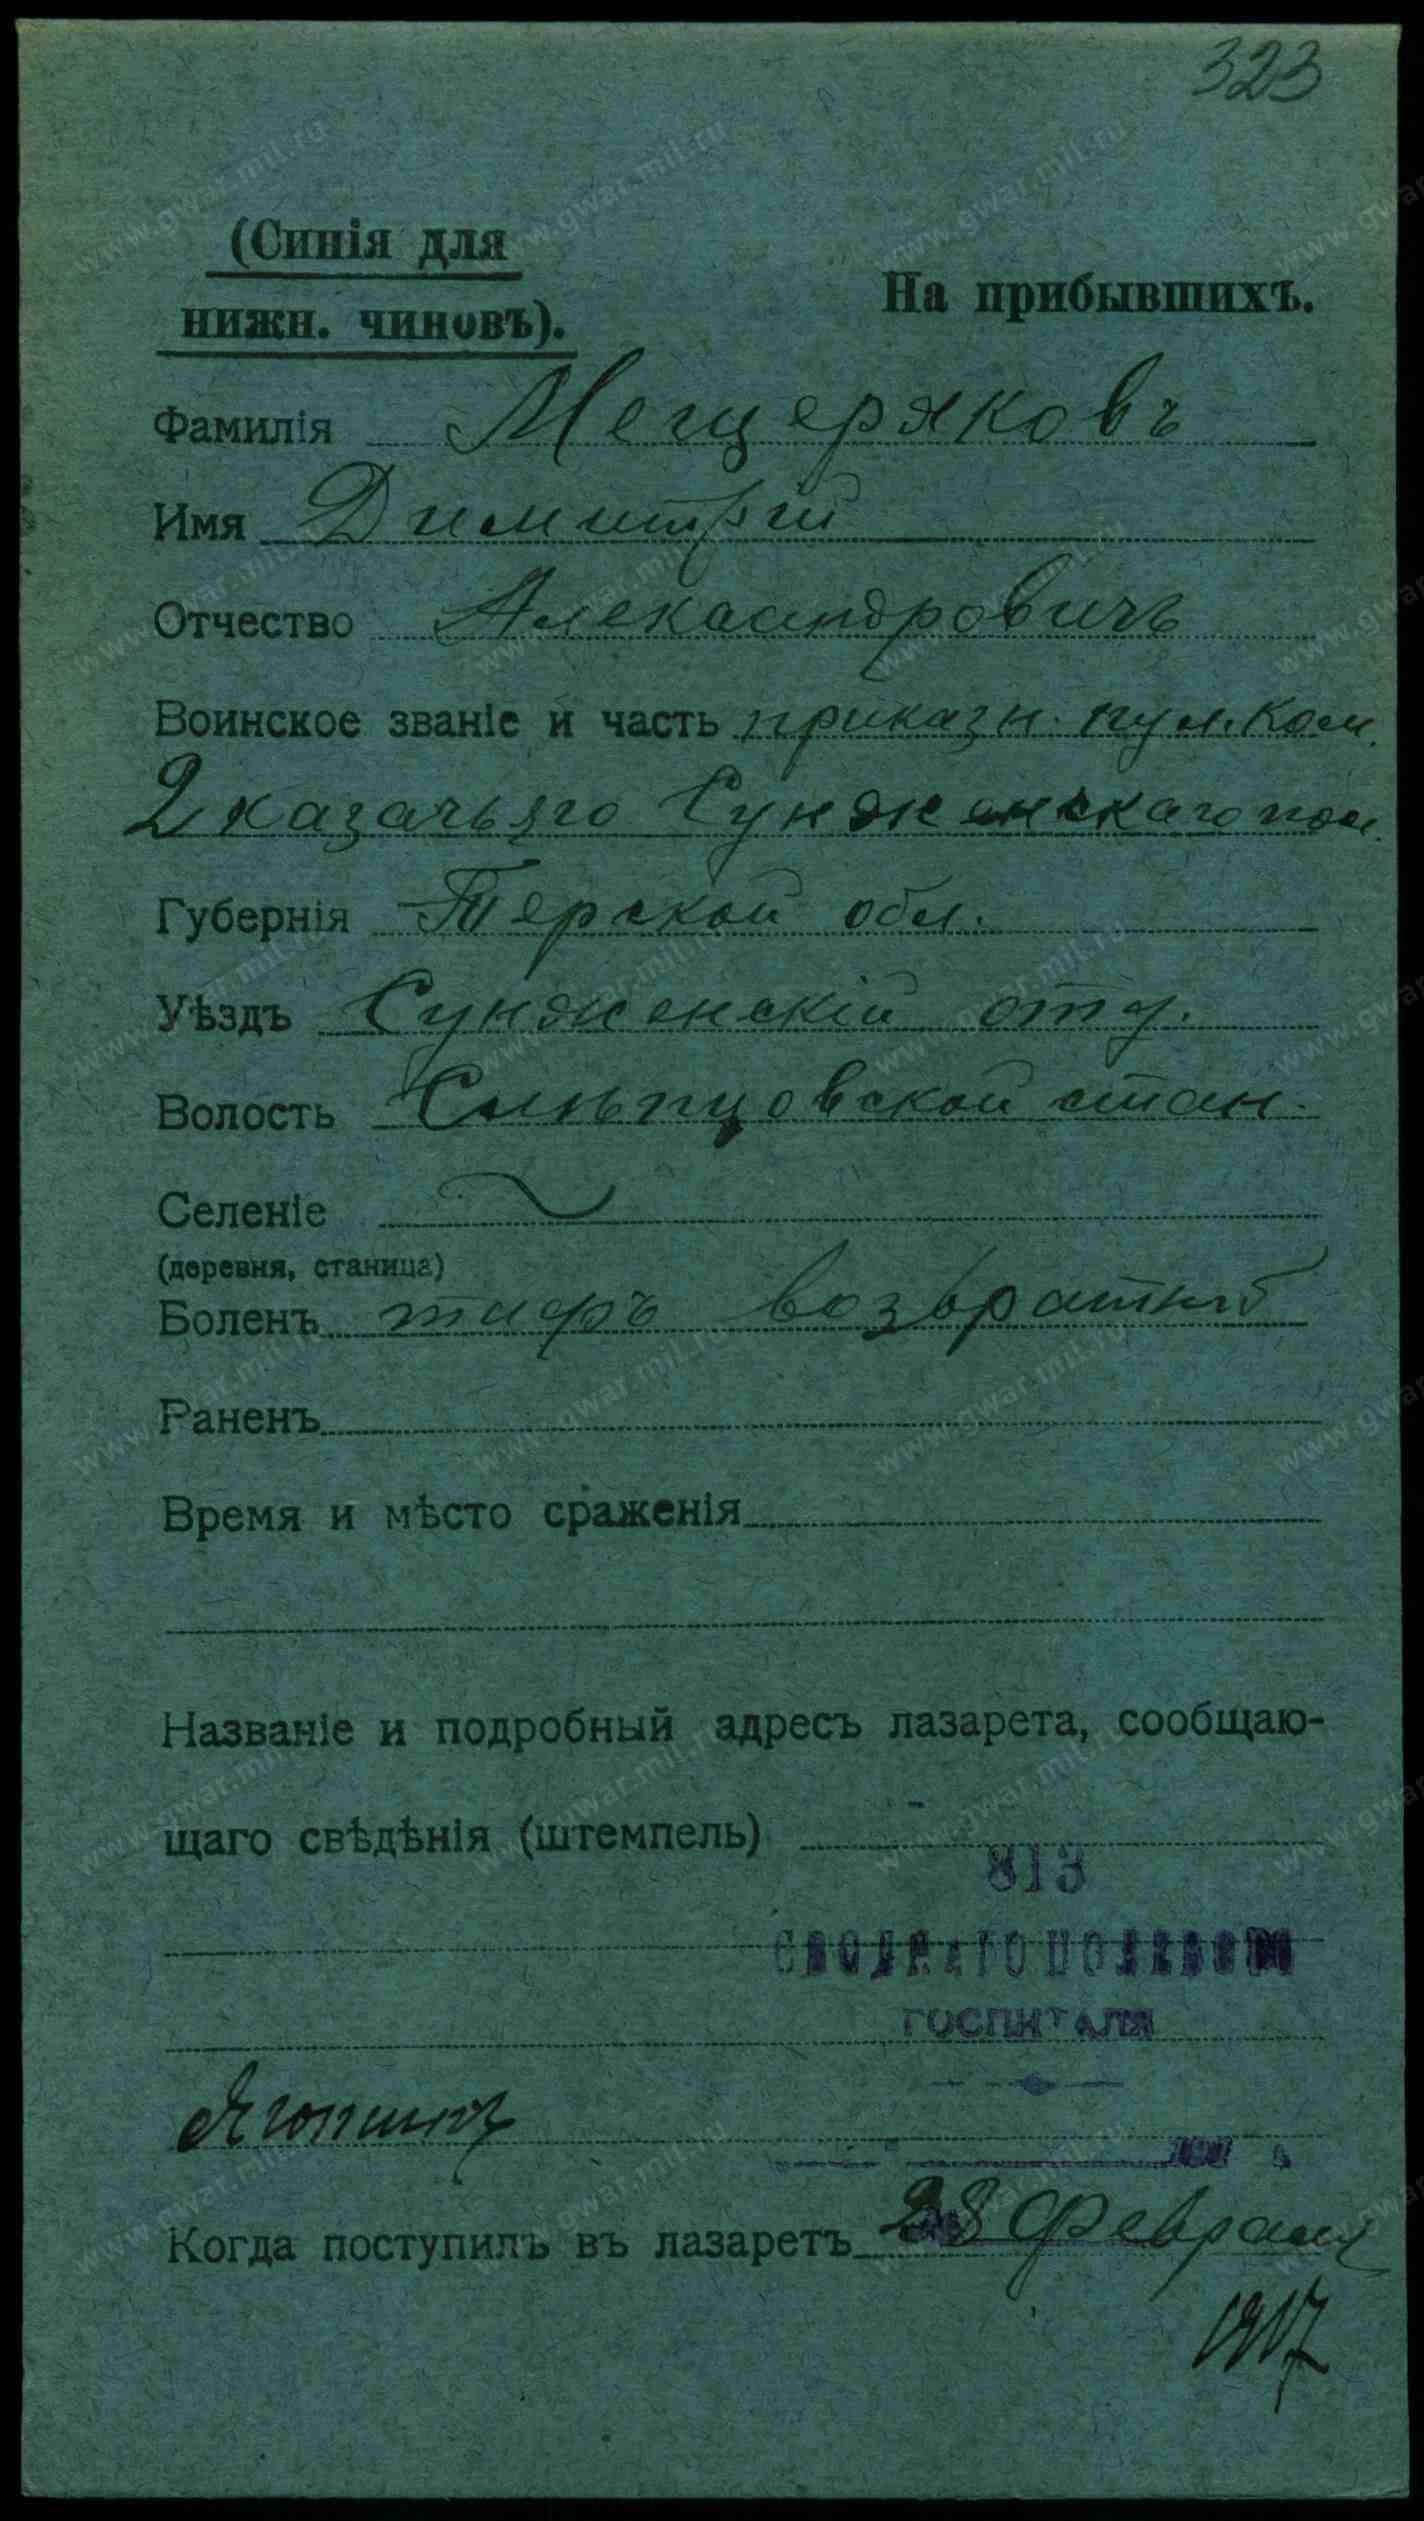 323
(Синія для
нижн. чиновъ).
На прибывшихъ.
Фамилія Мещеряковъ
Имя Димитрій
Отчество Александровичъ
Воинское званіе и часть приказн. пул. ком.
2 казачьяго Сунженскаго пол.
Губернія Терской обл.
Уѣздъ Сунженскій отд.
Волость Слѣпцовской стан.
Селеніе
(деревня, станица)
Боленъ тифъ возвратный
Раненъ
Время и мѣсто сраженія
Названіе и подробный адресъ лазарета, сообщаю-
щаго свѣдѣнія (штемпель)
813
СВОДНАГО ПОЛЕВОГО
ГОСПИТАЛЯ
Когда поступилъ въ лазаретъ 28 Февраля
1917
www.gwar.mil.ru